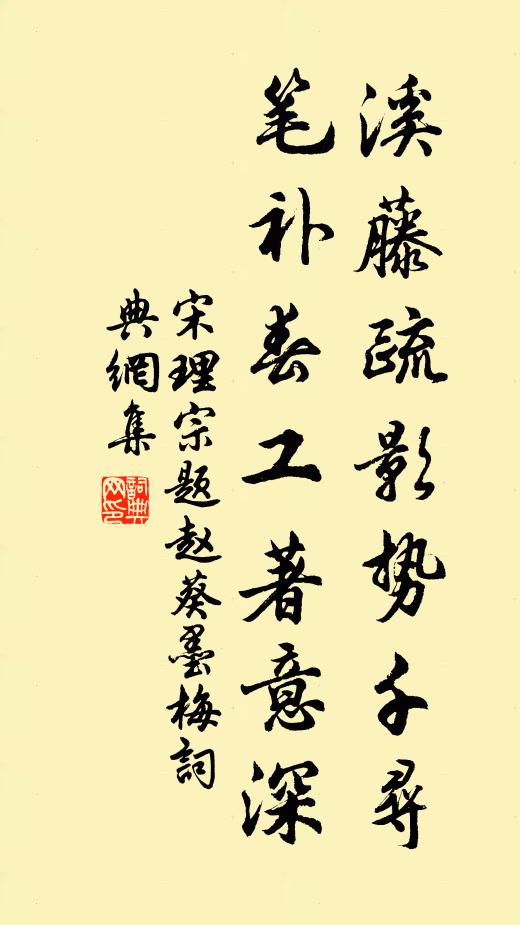 溪藤疏影势千寻
笔补春工著意深
宋理宗题赵葵墨梅词
典網集
詞典網印